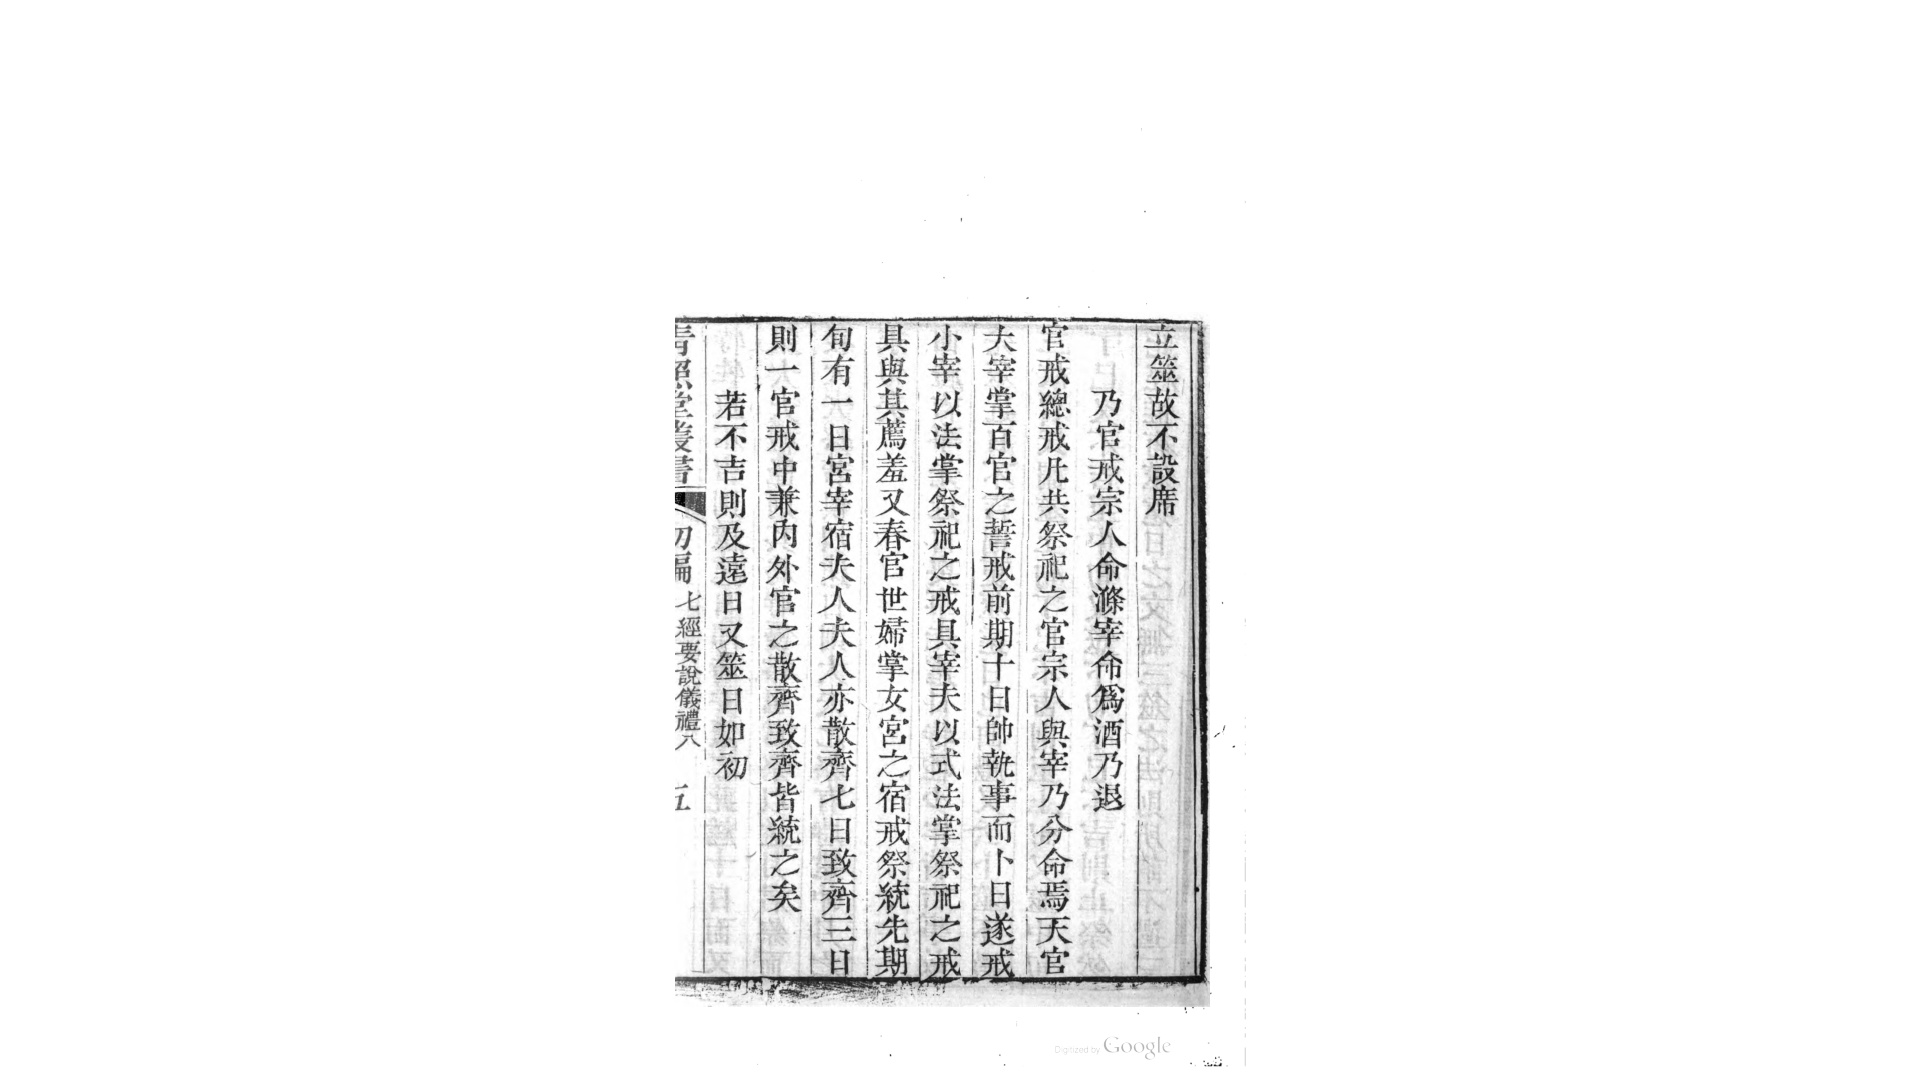 立筮故不設席
乃官戒宗人命滌宰命爲酒乃退
官戒總戒凡共祭祀之官宗人與宰乃分命焉天官
大宰掌百官之誓戒前期十日帥執事而卜日遂戒
小宰以法掌祭祀之戒具宰夫以式法掌祭祀之戒
具與其薦羞又春官世婦掌女宮之宿戒祭統先期
旬有一日宮宰宿夫人夫人亦散齊七日致齊三日
則一官戒中兼內外官之散齊致齊皆統之矣
若不吉則及遠日又筮日如初
青照堂叢書 初編 七經要說儀禮八 五
Digitized by Google